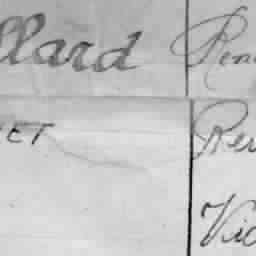 llard Ren
ET Rev
Vic